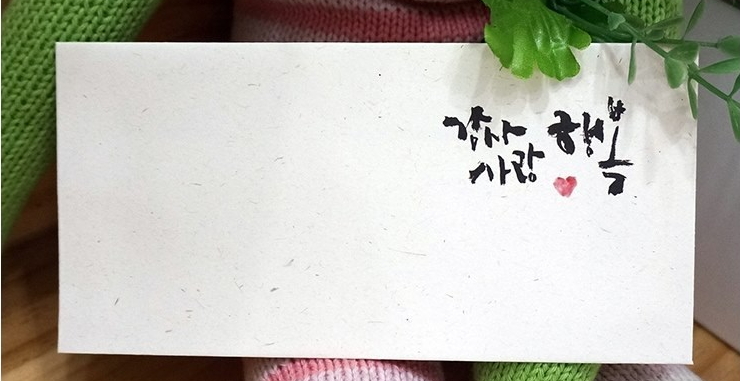 감사 행복
사랑